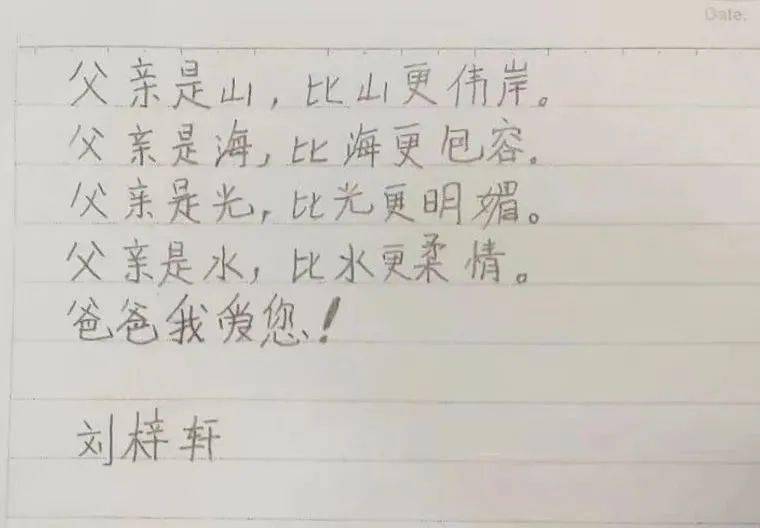 Date.
父亲是山，比山更伟岸。
父亲是海，比海更包容.
父亲是光，比光更明媚。
父亲是水，比水更柔情。
爸爸我爱您！
刘梓轩